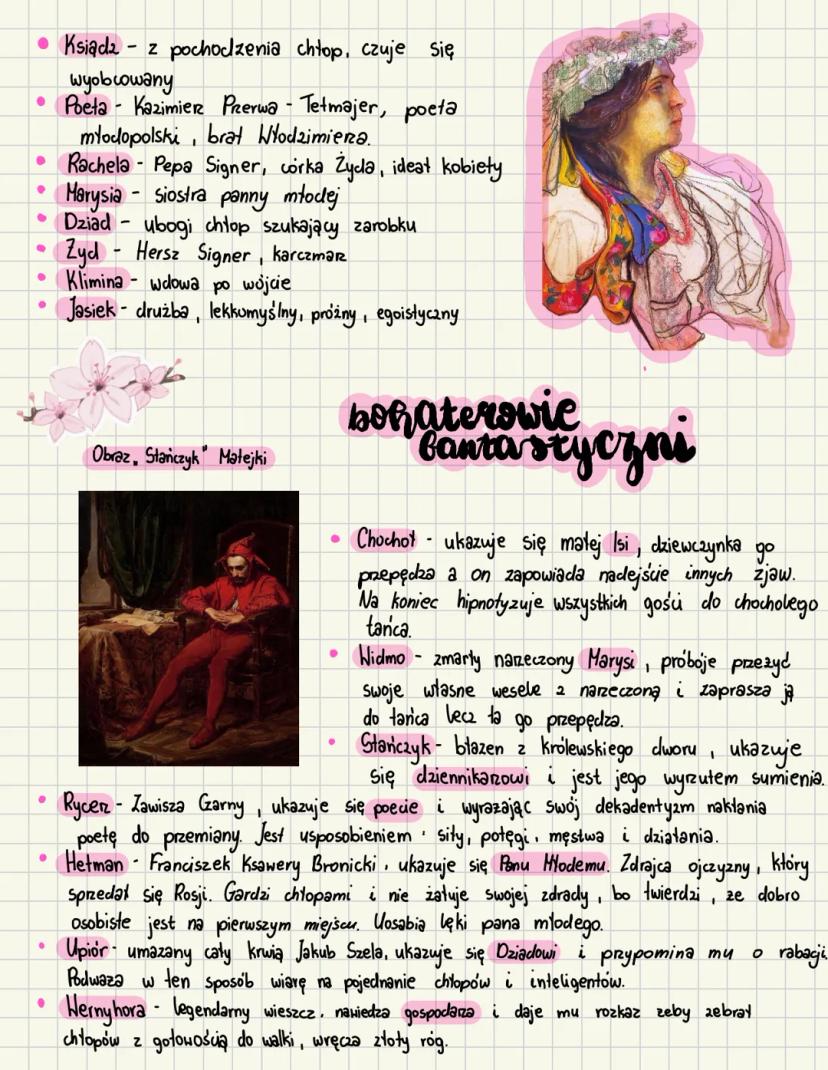 Ksiądz - z pochodzenia chłop, czuje się
wyobcowany
Poeta - Kazimierz Przerwa - Tetmajer, poeta
młodopolski, brat Włodzimierza.
Rachela - Pepa Signer, córka Żyda, ideał kobiety
Marysia - siostra panny młodej
Dziad - ubogi chłop szukający zarobku
Żyd - Hersz Signer, karczmarz
Klimina - wdowa po wójcie
Jasiek - drużba, lekkomyślny, próżny, egoistyczny
bohaterowie
fantastyczni
Obraz "Stańczyk" Matejki
Chochoł - ukazuje się małej Isi, dziewczynka go
przepędza a on zapowiada nadejście innych zjaw.
Na koniec hipnotyzuje wszystkich gości do chocholego
tańca.
Widmo - zmarły narzeczony Marysi, próbóje przeżyć
swoje własne wesele z narzeczoną i zaprasza ją
do tańca lecz ta go przepędza.
Stańczyk - błazen z królewskiego dworu, ukazuje
się dziennikarzowi i jest jego wyrzutem sumienia.
Rycerz - Zawisza Czarny, ukazuje się poecie i wyrażając swój dekadentyzm nakłania
poetę do przemiany. Jest usposobieniem siły, potęgi, męstwa i działania.
Hetman - Franciszek Ksawery Bronicki, ukazuje się Panu Młodemu. Zdrajca ojczyzny, który
sprzedał się Rosji. Gardzi chłopami i nie żałuje swojej zdrady, bo twierdzi, ze dobro
osobiste jest na pierwszym miejscu. Uosabia lęki pana młodego.
Upiór - umazany cały krwią Jakub Szela, ukazuje się Dziadowi i przypomina mu o rabacji.
Podważa w ten sposób wiarę na pojednanie chłopów i inteligentów.
Wernyhora - legendarny wieszcz, nawiedza gospodarza i daje mu rozkaz zeby zebrał
chłopów z gotowością do walki, wręcza złoty róg.